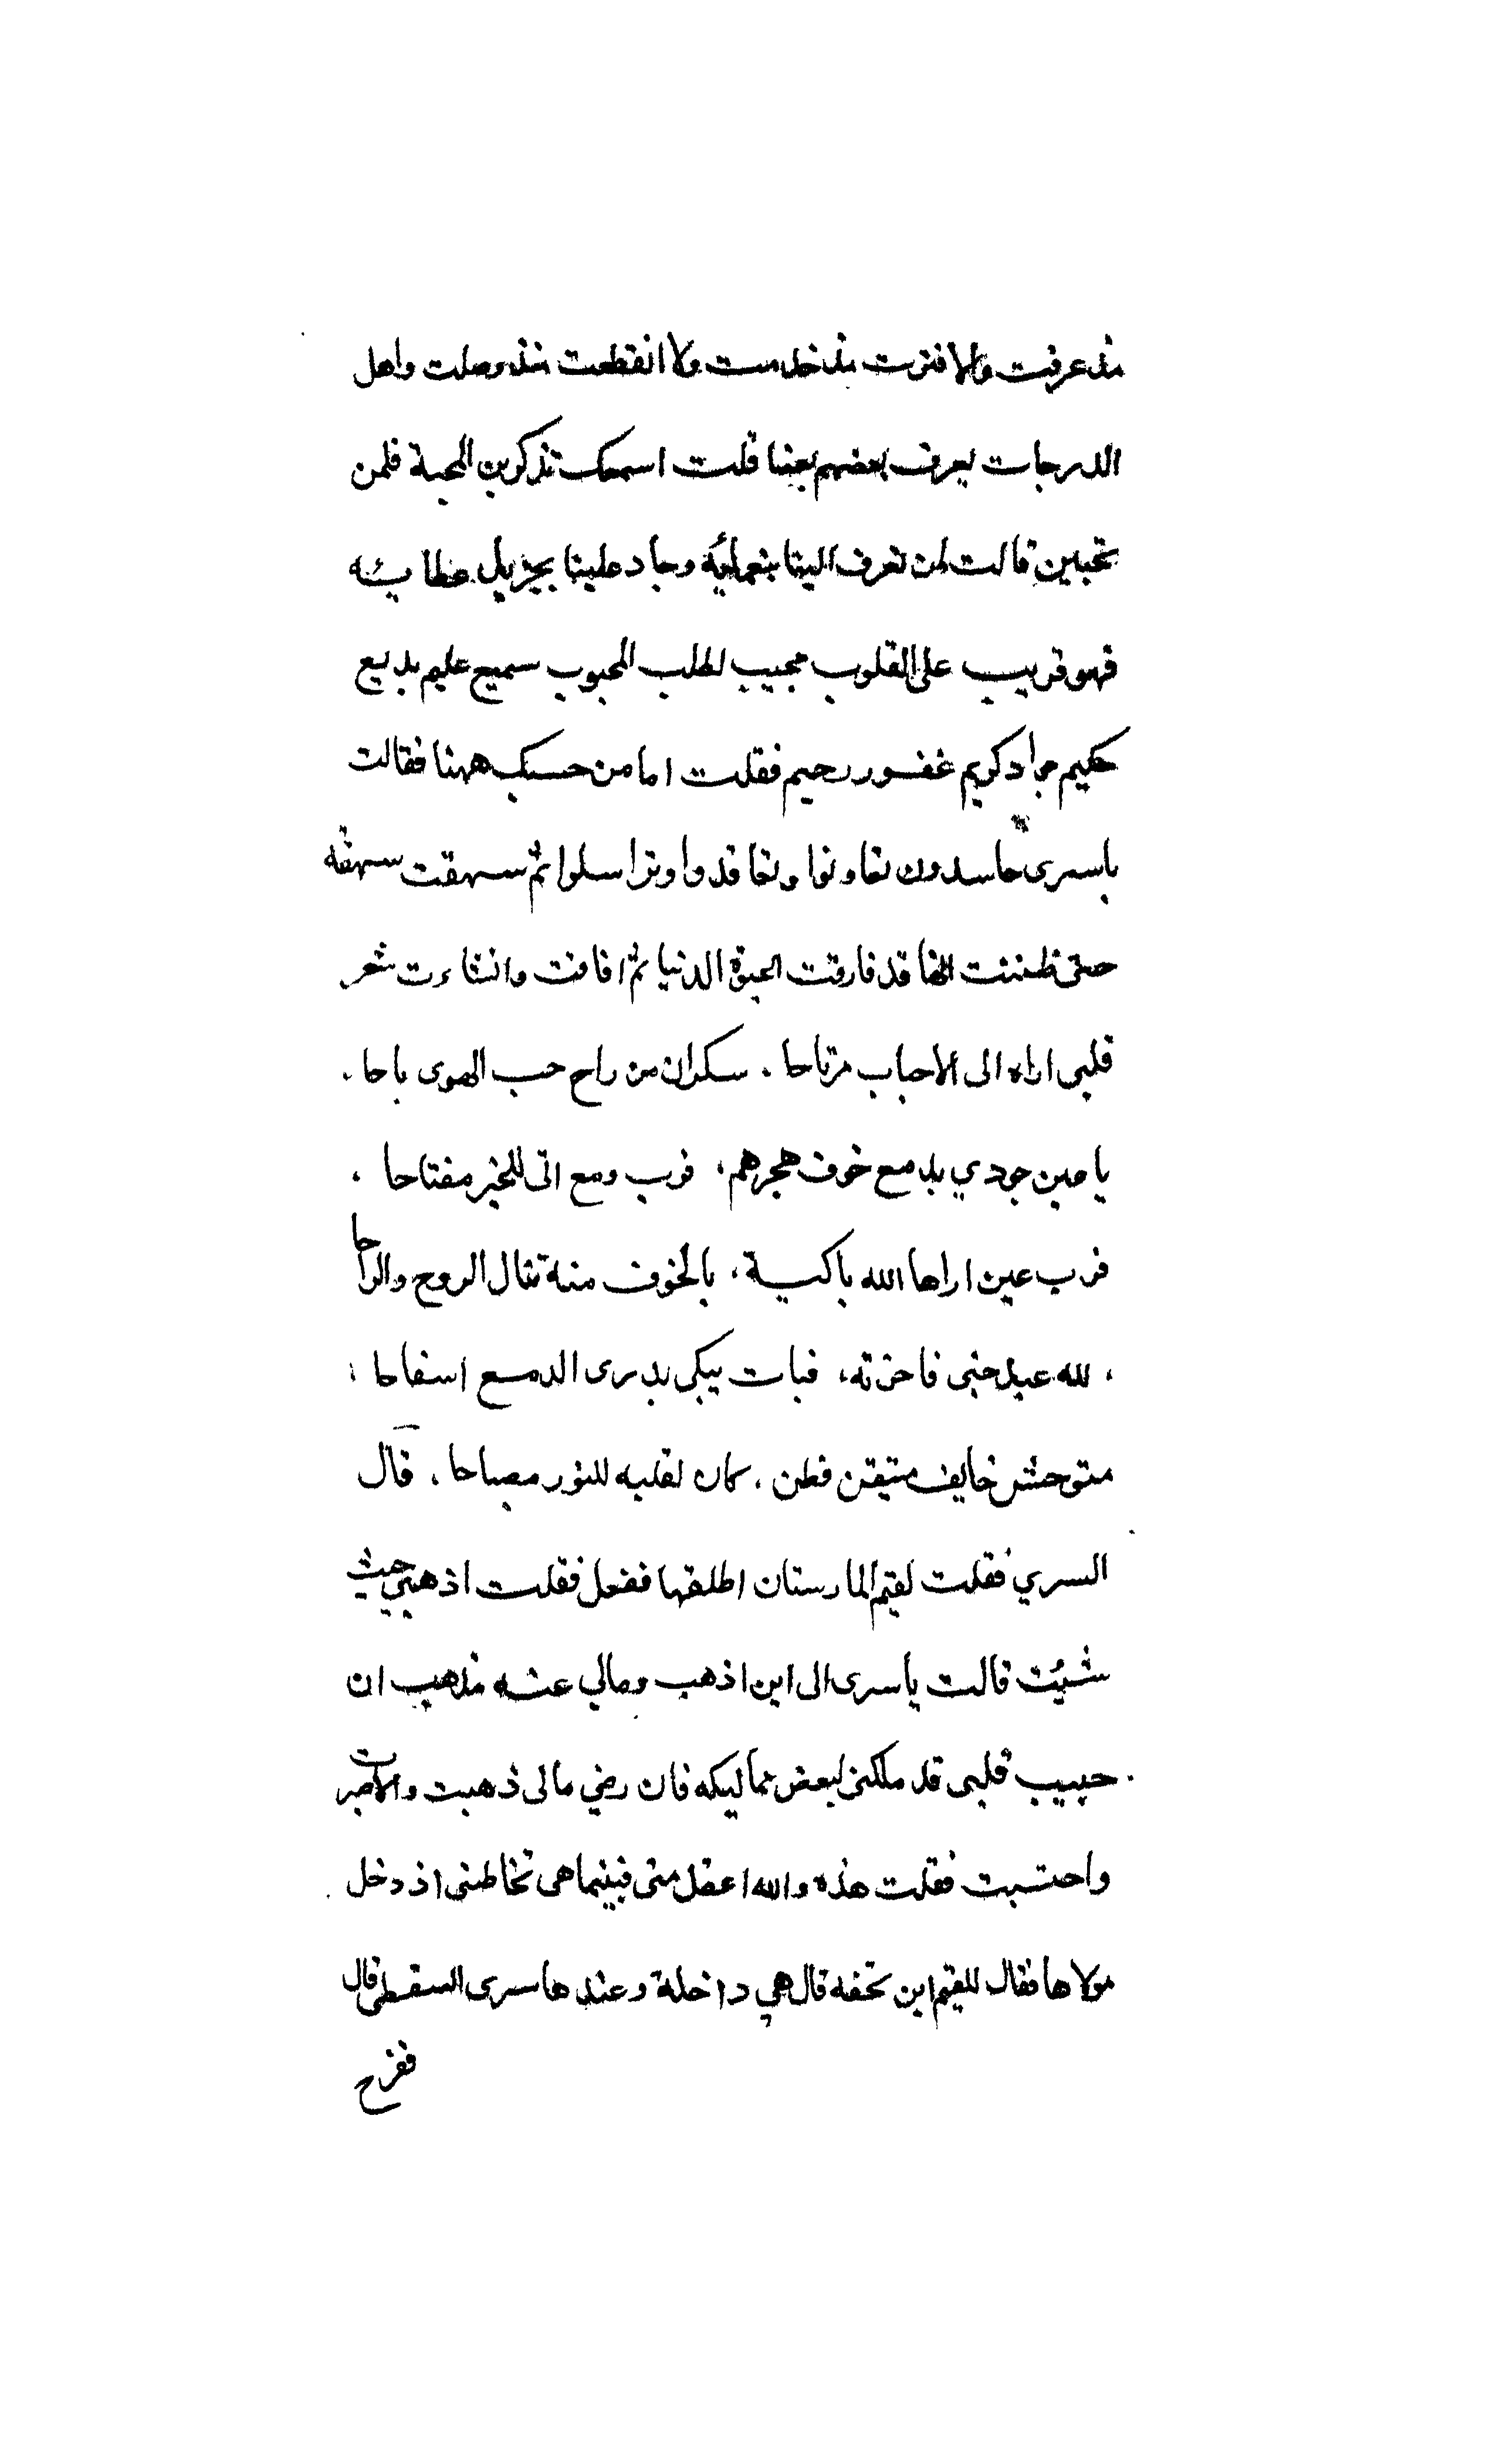 منذ عرفت ولا فترت منذ خدمت ولا انقطعت منذ وصلت واهل
الدرجات يعرف بعضهم بعضا قلت اسمعك تذكرين المحبة فلمن
تحبين قالت لمن تعرف الينا بنعمائه وجاد علينا بجزيل عطايئه
فهو قريب على القلوب مجيب لطلب المحبوب سميع عليم بديع
حكيم جواد كريم غفور رحيم فقلت اما من حسبك ههنا فقالت
ياسرى حاسدون تعاونوا وتعاقدوا وتراسلوا ثم سهقت سهقه
حتى ظننت انها قد فارقت الحيوة الدنيا ثم افاقت وانشاءت شعر
قلبى اراه الى الاحباب مرتاحا . سكران من راح حب الهوى باحا .
يا عين جودي بدمع خوف هجرهم ، فرب دمع اتى للخير مفتاحا ،
فرب عين اراها الله باكية ، بالخوف منه تنال الروح والراحا
، لله عبد جنى فاحزنه ، فبات يبكى يدرى الدمع اسفاحا ،
متوحش خايف متيقن فطن . كان لقلبه للنور مصباحا . قال
السري فقلت لقيم المارستان اطلقها ففعل فقلت اذهبي حيث
شئيت قالت ياسرى الى اين اذهب ومالي عنه مذهب ان
حبيب قلبى قد ملكنى لبعض مماليكه فان رضي مالى ذهبت والا صبرت
واحتسبت فقلت هذه والله اعقل منى فبينما هى تخاطبنى اذ دخل
مولاها فقال للقيم اين تحفه قال هي داخلة وعندها سرى السقطى قال
ففرح